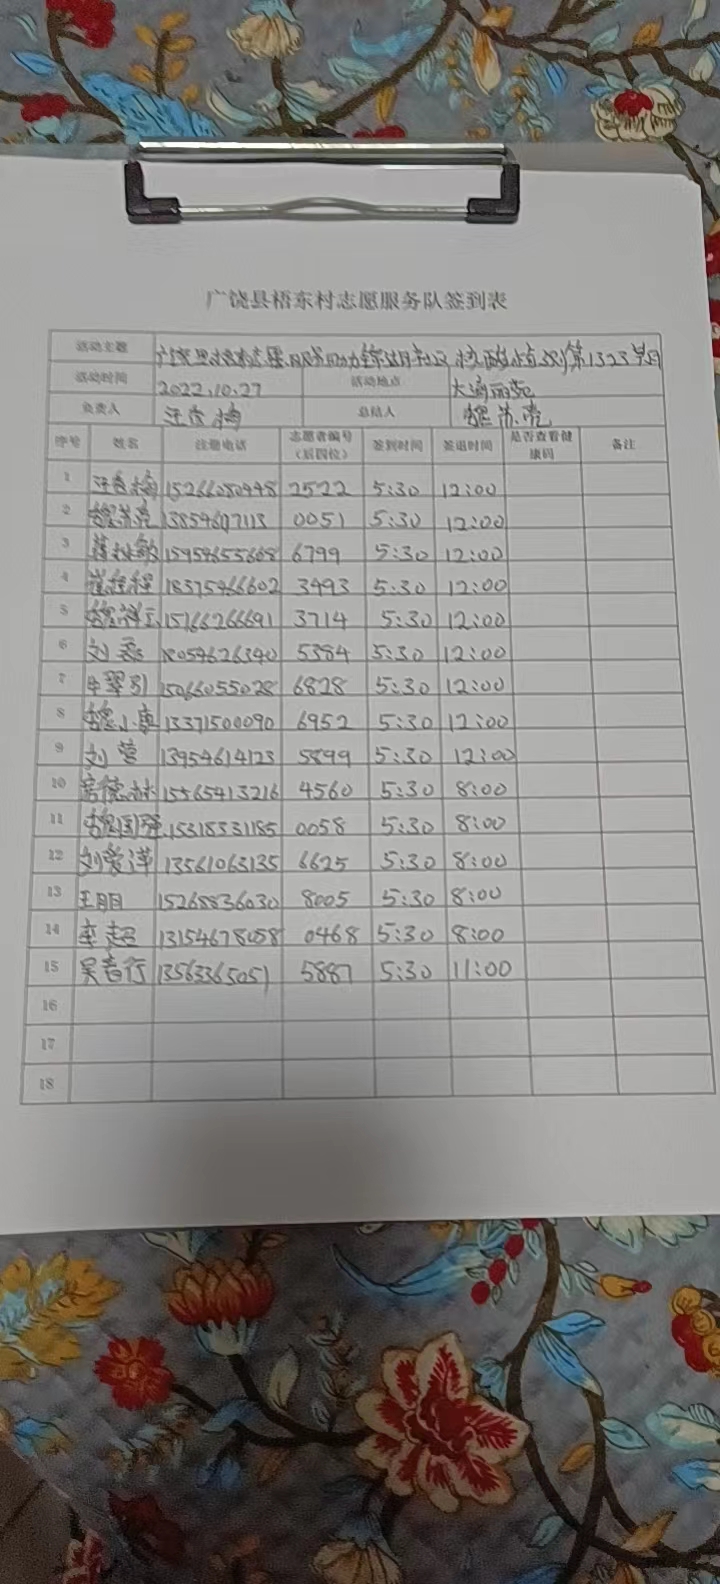 广饶县梧东村志愿服务队签到表
活动主题 核酸检测第1323期
活动时间 2022.10.27 活动地点 大海丽苑
负责人 总结人 魏苏亮
序号 姓名 注册电话 志愿者编号（后四位） 签到时间 签退时间 是否查看健康码 备注
1 15266080448 2522 5:30 12:00
2 魏苏亮 13854607113 0051 5:30 12:00
3 15954653668 6799 5:30 12:00
4 崔桂程 18375466602 3493 5:30 12:00
5 15766266691 3714 5:30 12:00
6 刘磊 18054626340 5384 5:30 12:00
7 牛翠引 15066055028 6828 5:30 12:00
8 魏小康 13371500090 6952 5:30 12:00
9 刘莹 13954614123 5899 5:30 12:00
10 15565413216 4560 5:30 8:00
11 魏国强 15318331185 0058 5:30 8:00
12 刘爱萍 13561063135 6625 5:30 8:00
13 王朋 15268836030 8005 5:30 8:00
14 李超 13154678058 0468 5:30 8:00
15 13563365051 5887 5:30 11:00
16
17
18